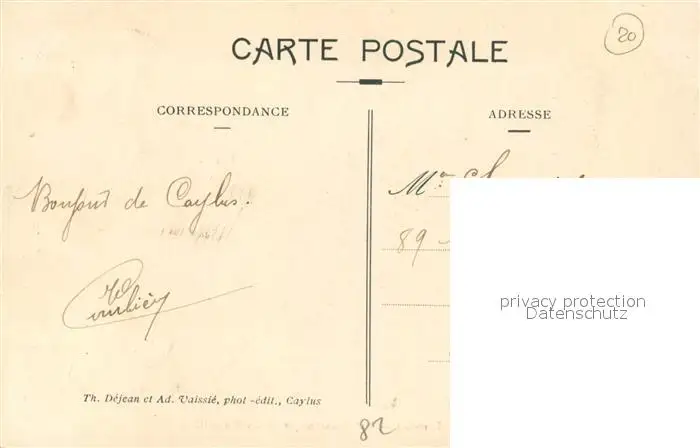 20
CARTE POSTALE
CORRESPONDANCE
ADRESSE
Bonjour de Caylus.
89
privacy protection
Datenschutz
Th. Déjean et Ad. Vaissié, phot-édit., Caylus
82